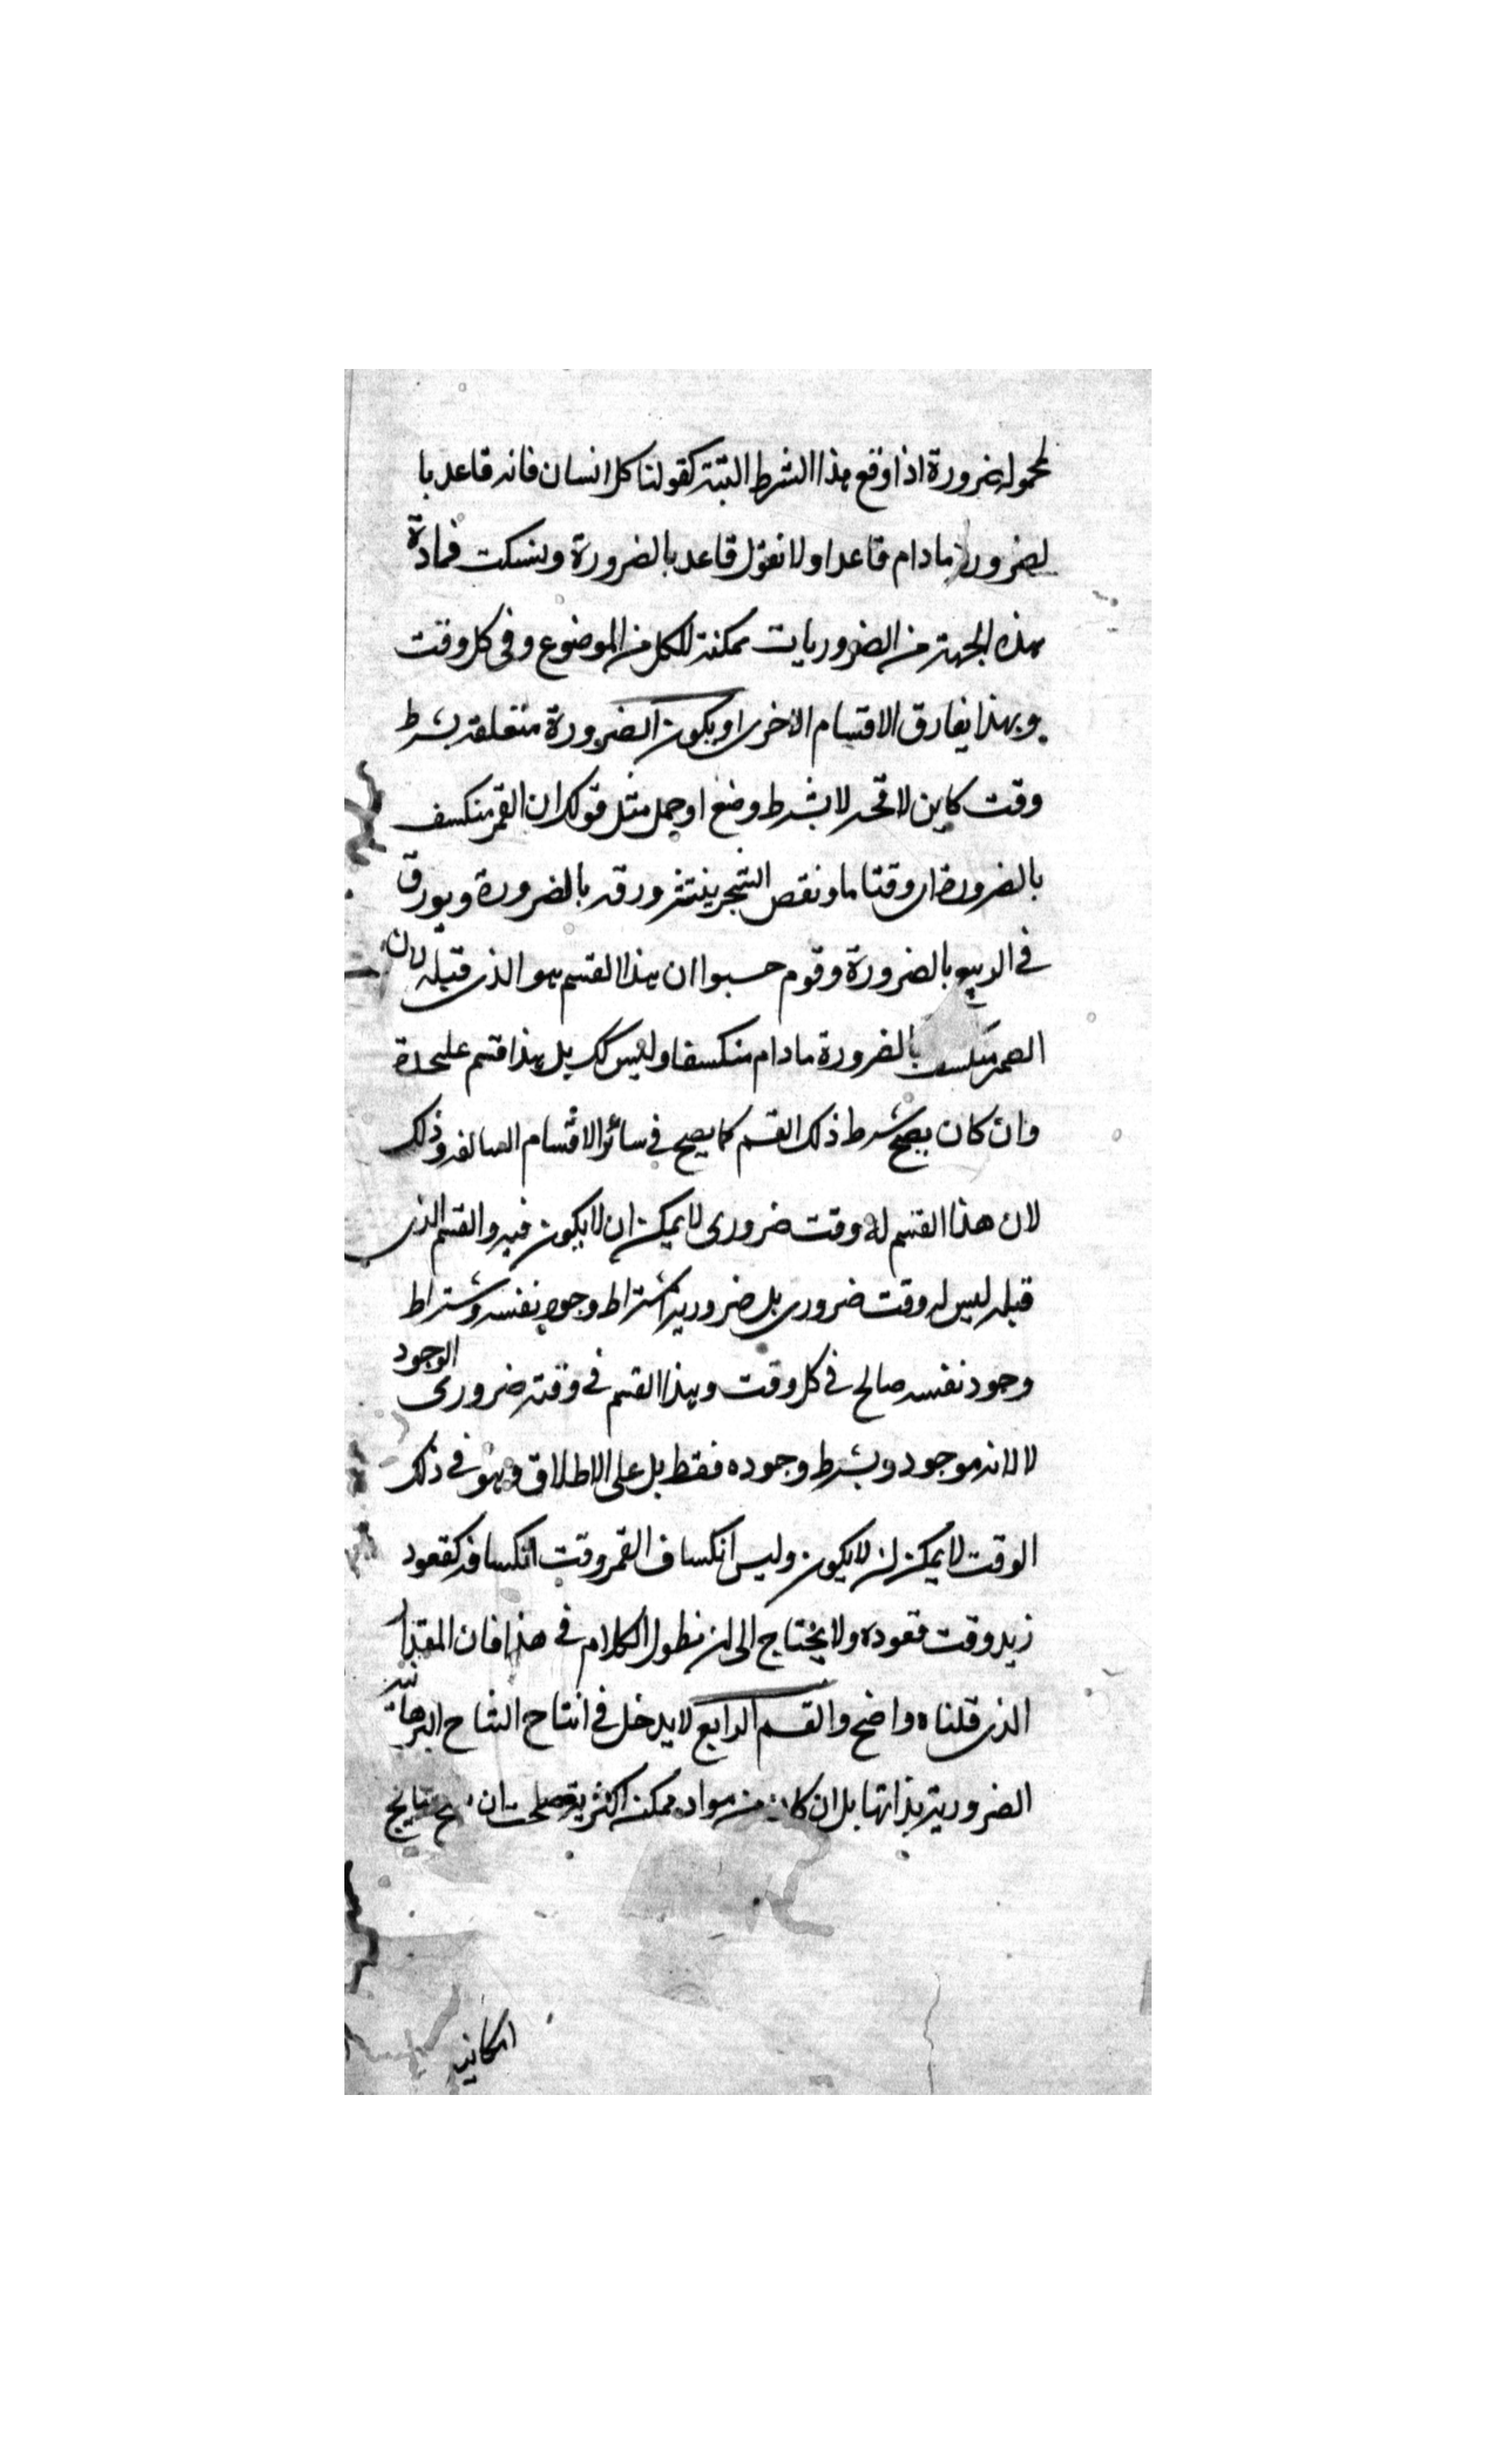 محموله ضرورة اذا وقع هذا الشرط البتة كقولنا كل انسان فانه قاعد با
لضرورة ما دام قاعدا ولا نقول قاعد بالضرورة ونسكت فمادة
هذه الجهة من الضروريات ممكنة للكل من الموضوع وفى كل وقت
وبهذا يفارق الاقسام الاخرى او يكون الضرورة متعلقة بشرط
وقت كاين لا محه لا بشرط وضع او حمل مثل قولك ان القمر منكسف
بالضرورة اى وقتا ما ونقص الشجر ينتثر ورقه بالضرورة ويورق
في الربيع بالضرورة وقوم حسبوا ان هذا القسم هو الذى قبله لان
القمر منكسف بالضرورة ما دام منكسفا وليس كك بل هذا قسم عليحدة
وان كان يصح شرط ذلك القسم كما يصح في سائر الاقسام السالفة وذلك
لان هذا القسم له وقت ضرورى لا يمكن ان لا يكون فيه والقسم الذى
قبله ليس له وقت ضرورى بل ضروريه اشتراط وجود نفسه وشتراط
وجود نفسه صالح في كل وقت وهذا القسم في وقته ضرورى الوجود
لا لانه موجود وبشرط وجوده فقط بل على الاطلاق وهو في ذلك
الوقت لا يمكن ان لا يكون وليس انكساف القمر وقت انكسافه كقعود
زيد وقت قعوده ولا يحتاج الى ان نطول الكلام في هذا فان المقدار
الذى قلناه واضح والقسم الرابع لا يدخل في انتاج النتاج البرهانية
الضرورية بذاتها بل ان كان من مواد ممكنة اكثرية صلحت ان نتايج
امكانية